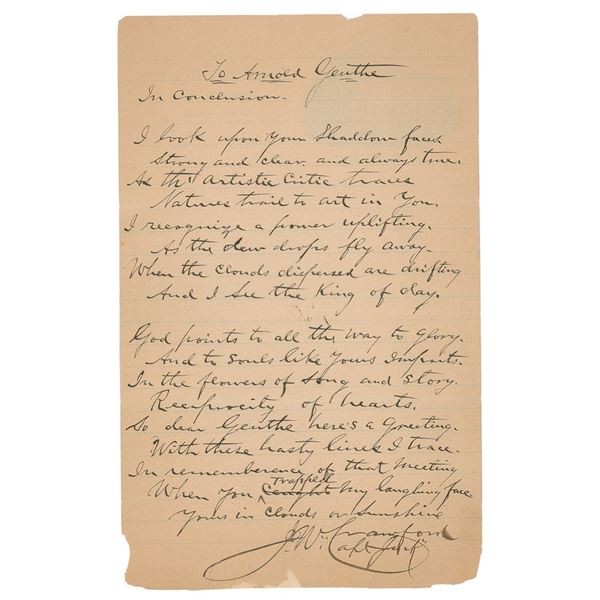 To Arnold Genthe
In Conclusion.
I look upon your Shaddow faces
Strong and clear. and always true.
As th' artistic Critic traces
Natures trail to art in You.
I recognize a power uplifting.
As the dew drops fly away.
When the Clouds dispersed are drifting
And I See the King of day.
God points to all the way to Glory.
And to Souls like Yours Imparts.
In the flowers of Song and Story.
Reciprocity of hearts.
So dear Genthe here's a Greeting.
With these hasty lines I trace.
In rememberence of that Meeting
trapped
When You Caught My laughing face
Yours in Clouds or Sunshine
J. W. Crawford
Capt Jack"